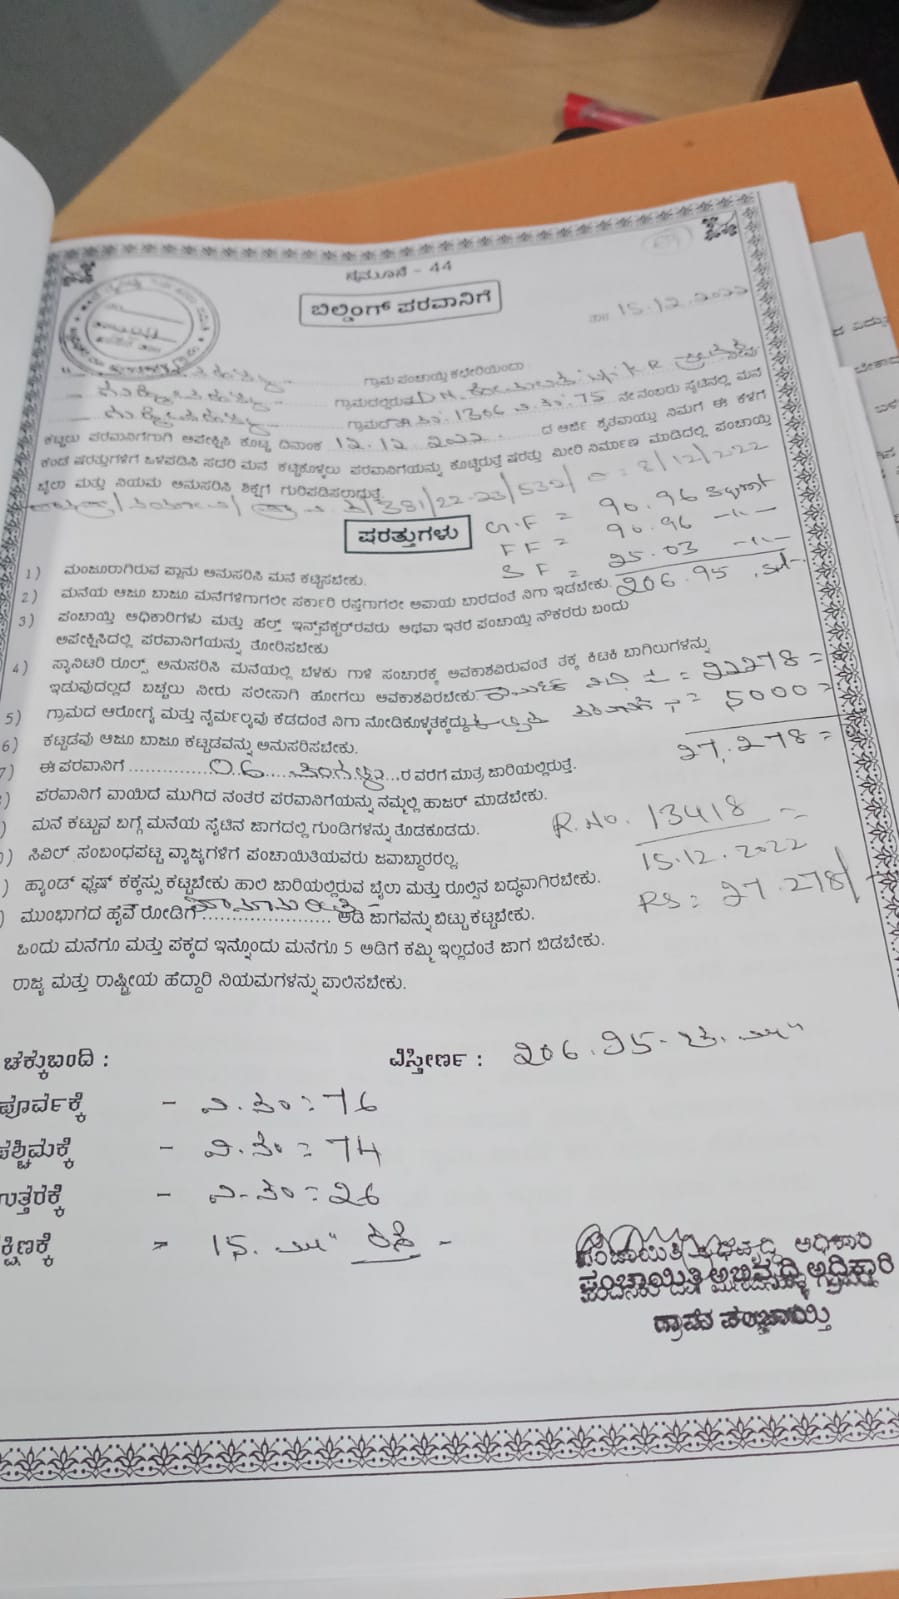 ನಮೂನೆ - 44
ಬಿಲ್ಡಿಂಗ್ ಪರವಾನಿಗೆ
15.12.2022
ಗ್ರಾಮ ಪಂಚಾಯ್ತಿ ಕಛೇರಿಯಿಂದಾ
1306 75 ನೇ ನಂಬರು ಸೈಟಿನಲ್ಲಿ ಮನೆ
ಕಟ್ಟಲು ಪರವಾನಿಗೆಗಾಗಿ ಅಪೇಕ್ಷಿಸಿ ಕೊಟ್ಟ ದಿನಾಂಕ 12.12.2022 ದ ಅರ್ಜಿ ಶೃತವಾಯ್ತು ನಿಮಗೆ ಈ ಕೆಳಗೆ
ಕಂಡ ಷರತ್ತುಗಳಿಗೆ ಒಳಪಡಿಸಿ ಸದರಿ ಮನೆ ಕಟ್ಟಿಕೊಳ್ಳಲು ಪರವಾನಿಗೆಯನ್ನು ಕೊಟ್ಟಿರುತ್ತೆ ಷರತ್ತು ಮೀರಿ ನಿರ್ಮಾಣ ಮಾಡಿದಲ್ಲಿ ಪಂಚಾಯ್ತಿ
ಬೈಲಾ ಮತ್ತು ನಿಯಮ ಅನುಸರಿಸಿ ಶಿಕ್ಷೆಗೆ ಗುರಿಪಡಿಸಲಾಗುತ್ತೆ
381/22-23/532/
ಷರತ್ತುಗಳು
G.F = 90.96 Sqmt
FF = 90.96 -11-
SF = 25.03 -11-
206.95
1) ಮಂಜೂರಾಗಿರುವ ಪ್ಲಾನು ಅನುಸರಿಸಿ ಮನೆ ಕಟ್ಟಿಸಬೇಕು.
2) ಮನೆಯ ಆಜೂ ಬಾಜೂ ಮನೆಗಳಿಗಾಗಲೀ ಸರ್ಕಾರಿ ರಸ್ತೆಗಾಗಲೀ ಅಪಾಯ ಬಾರದಂತೆ ನಿಗಾ ಇಡಬೇಕು.
3) ಪಂಚಾಯ್ತಿ ಅಧಿಕಾರಿಗಳು ಮತ್ತು ಹೆಲ್ತ್ ಇನ್ಸ್‌ಪೆಕ್ಟರ್‌ರವರು ಅಥವಾ ಇತರೆ ಪಂಚಾಯ್ತಿ ನೌಕರರು ಬಂದು
ಅಪೇಕ್ಷಿಸಿದಲ್ಲಿ ಪರವಾನಿಗೆಯನ್ನು ತೋರಿಸಬೇಕು
4) ಸ್ಯಾನಿಟರಿ ರೂಲ್ಸ್ ಅನುಸರಿಸಿ ಮನೆಯಲ್ಲಿ ಬೆಳಕು ಗಾಳಿ ಸಂಚಾರಕ್ಕೆ ಅವಕಾಶವಿರುವಂತೆ ತಕ್ಕ ಕಿಟಕಿ ಬಾಗಿಲುಗಳನ್ನು
ಇಡುವುದಲ್ಲದೆ ಬಚ್ಚಲು ನೀರು ಸಲೀಸಾಗಿ ಹೋಗಲು ಅವಕಾಶವಿರಬೇಕು. = 22278=
5) ಗ್ರಾಮದ ಆರೋಗ್ಯ ಮತ್ತು ನೈರ್ಮಲ್ಯವು ಕೆಡದಂತೆ ನಿಗಾ ನೋಡಿಕೊಳ್ಳತಕ್ಕದ್ದು = 5000=
6) ಕಟ್ಟಡವು ಆಜೂ ಬಾಜೂ ಕಟ್ಟಡವನ್ನು ಅನುಸರಿಸಬೇಕು. 27,278=
7) ಈ ಪರವಾನಿಗೆ 06 ತಿಂಗಳು ರ ವರೆಗೆ ಮಾತ್ರ ಜಾರಿಯಲ್ಲಿರುತ್ತೆ.
) ಪರವಾನಿಗೆ ವಾಯಿದೆ ಮುಗಿದ ನಂತರ ಪರವಾನಿಗೆಯನ್ನು ನಮ್ಮಲ್ಲಿ ಹಾಜರ್ ಮಾಡಬೇಕು.
) ಮನೆ ಕಟ್ಟುವ ಬಗ್ಗೆ ಮನೆಯ ಸೈಟಿನ ಜಾಗದಲ್ಲಿ ಗುಂಡಿಗಳನ್ನು ತೊಡಕೂಡದು. R.No. 13418
) ಸಿವಿಲ್ ಸಂಬಂಧಪಟ್ಟ ವ್ಯಾಜ್ಯಗಳಿಗೆ ಪಂಚಾಯಿತಿಯವರು ಜವಾಬ್ದಾರರಲ್ಲ. 15.12.2022
) ಹ್ಯಾಂಡ್ ಫ್ಲಷ್ ಕಕ್ಕಸ್ಸು ಕಟ್ಟಬೇಕು ಹಾಲಿ ಜಾರಿಯಲ್ಲಿರುವ ಬೈಲಾ ಮತ್ತು ರೂಲ್ಸಿನ ಬದ್ಧವಾಗಿರಬೇಕು. RS: 27.278/
) ಮುಂಭಾಗದ ಹೈವೆ ರೋಡಿಗೆ ಅಡಿ ಜಾಗವನ್ನು ಬಿಟ್ಟು ಕಟ್ಟಬೇಕು.
ಒಂದು ಮನೆಗೂ ಮತ್ತು ಪಕ್ಕದ ಇನ್ನೊಂದು ಮನೆಗೂ 5 ಅಡಿಗೆ ಕಮ್ಮಿ ಇಲ್ಲದಂತೆ ಜಾಗ ಬಿಡಬೇಕು.
ರಾಜ್ಯ ಮತ್ತು ರಾಷ್ಟ್ರೀಯ ಹೆದ್ದಾರಿ ನಿಯಮಗಳನ್ನು ಪಾಲಿಸಬೇಕು.
ಚಕ್ಕುಬಂದಿ : ವಿಸ್ತೀರ್ಣ : 206.95 ಚ. ಮೀ
ಪೂರ್ವಕ್ಕೆ - ನಿ.ಸಂ:76
ಪಶ್ಚಿಮಕ್ಕೆ - ನಿ.ಸಂ:74
ಉತ್ತರಕ್ಕೆ - ನಿ.ಸಂ:26
ಕ್ಷಿಣಕ್ಕೆ - 15. ಮೀ ರಸ್ತೆ -
ಪಂಚಾಯಿತಿ ಅಭಿವೃದ್ಧಿ ಅಧಿಕಾರಿ
ಗ್ರಾಮ ಪಂಚಾಯ್ತಿ